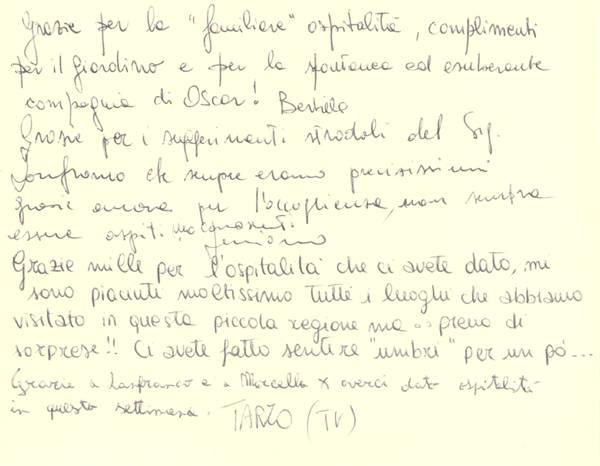 Grazie per la "familiare" ospitalità, complimenti
per il giardino e per la spontanea ed esuberante
compagnia di Oscar!
Grazie per i suggerimenti stradali del Sig.
Lanfranco che sempre erano precisissimi
grazie ancora per l'accoglienza, non sembra
essere ospiti
Grazie mille per l'ospitalità che ci avete dato, mi
sono piaciuti moltissimo tutti i luoghi che abbiamo
visitato in questa piccola regione ma piena di
sorprese!! Ci avete fatto sentire "umbri" per un pó...
Grazie a Lanfranco e a Marcella x averci dato ospitalità
in questa settimana. TARZO (TV)